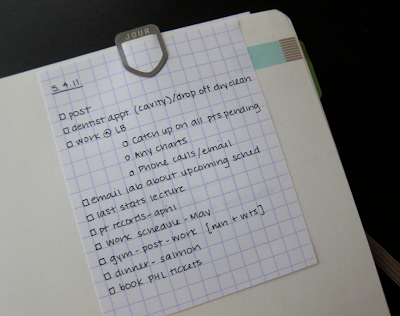 JOUR
5.4.11
post
dentist appt (cavity)/drop off dryclean
work @ LB
Catch up on all pts pending
Any charts
Phone calls/email
email lab about upcoming sched
last stats lecture
pt records - april
work schedule - May
gym - post - work [run + wts]
dinner - salmon
book PHL tickets